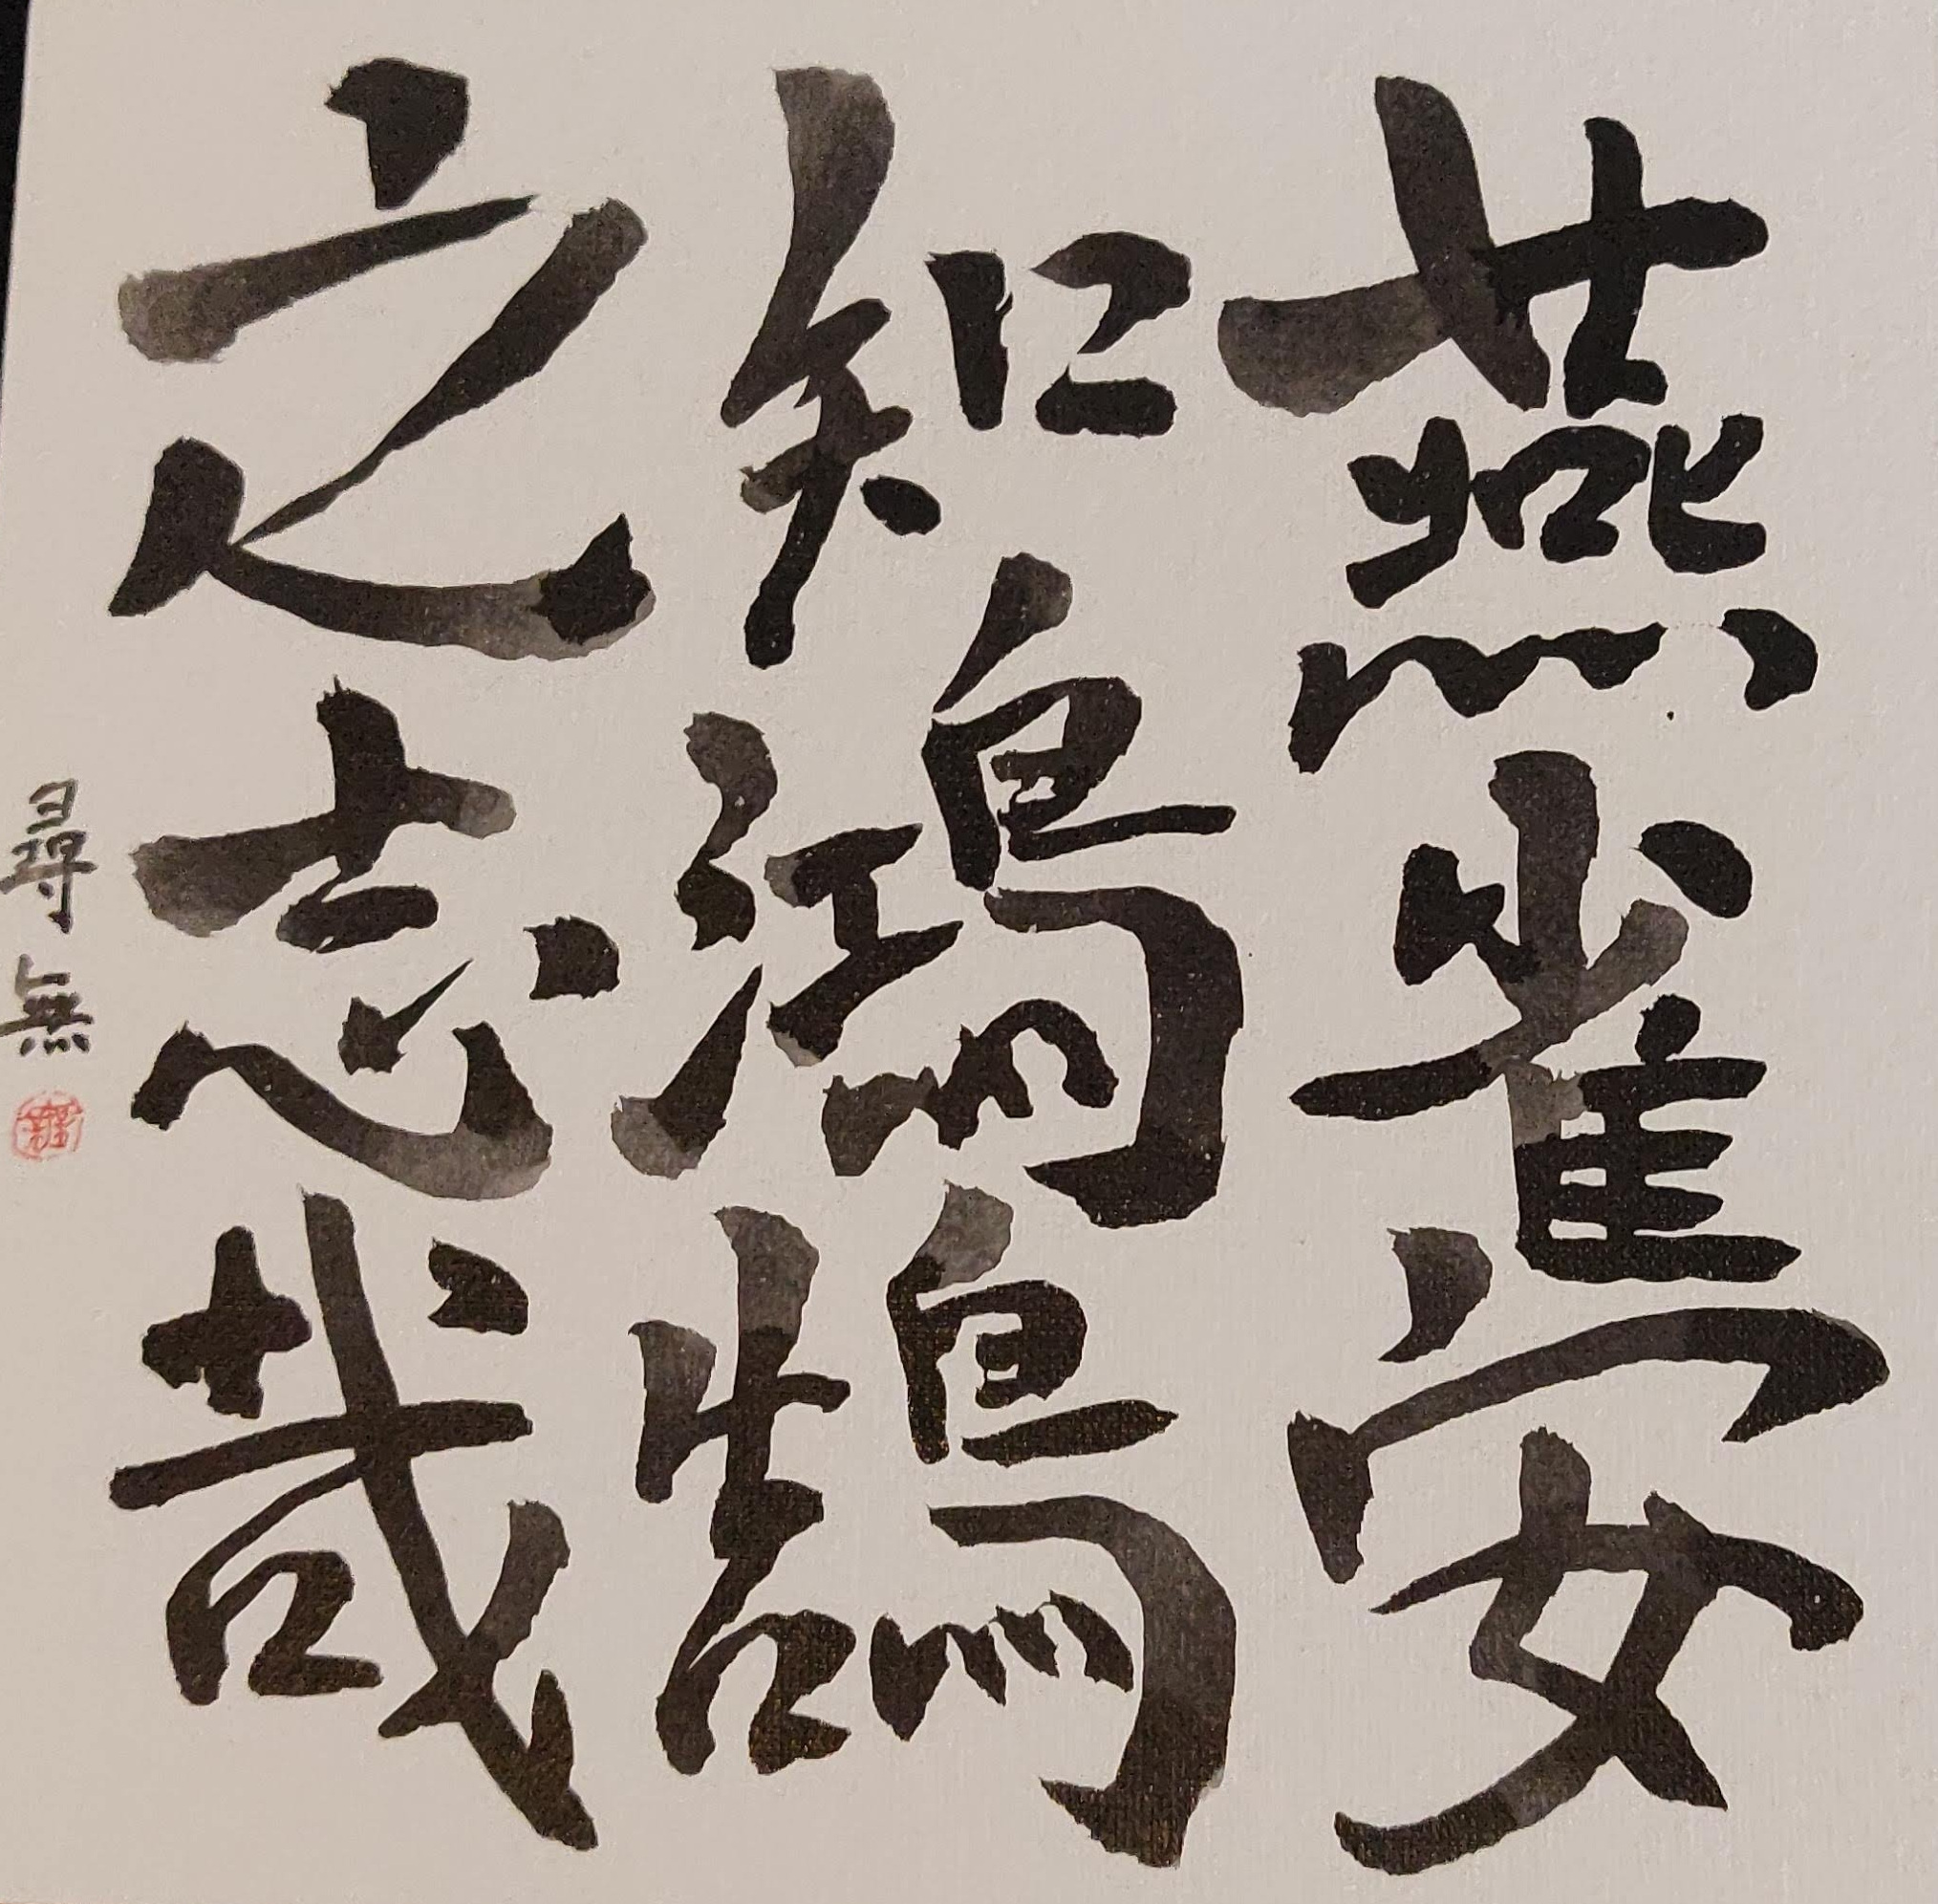 燕雀安
知鴻鵠
之志哉
尋無